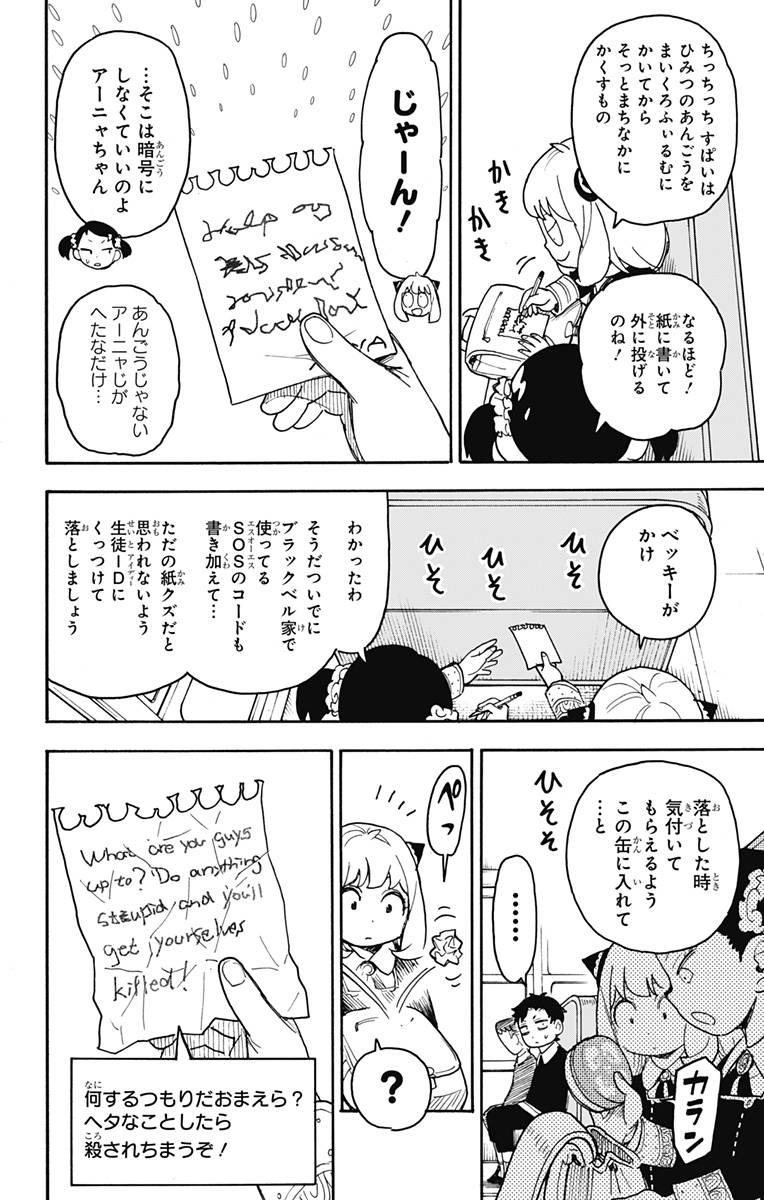 ちっちっち すぱいは
ひみつのあんごうを
まいくろふぃるむに
かいてから
そっとまちなかに
かくすもの
かき
かき
なるほど!
紙に書いて
外に投げる
のね!
じゃーん!
…そこは暗号に
しなくていいのよ
アーニャちゃん
あんごうじゃない
アーニャじが
へたなだけ…
ベッキーが
かけ
ひそ
ひそ
わかったわ
そうだついでに
ブラックベル家で
使ってる
SOSのコードも
書き加えて…
ただの紙クズだと
思われないよう
生徒IDに
くっつけて
落としましょう
落とした時
気付いて
もらえるよう
この缶に入れて
…と
ひそそ
カラン
……
ぺっ
?
What are you guys
up to? Do anything
stupid and you'll
get yourselves
killed!
何するつもりだおまえら?
ヘタなことしたら
殺されちまうぞ!